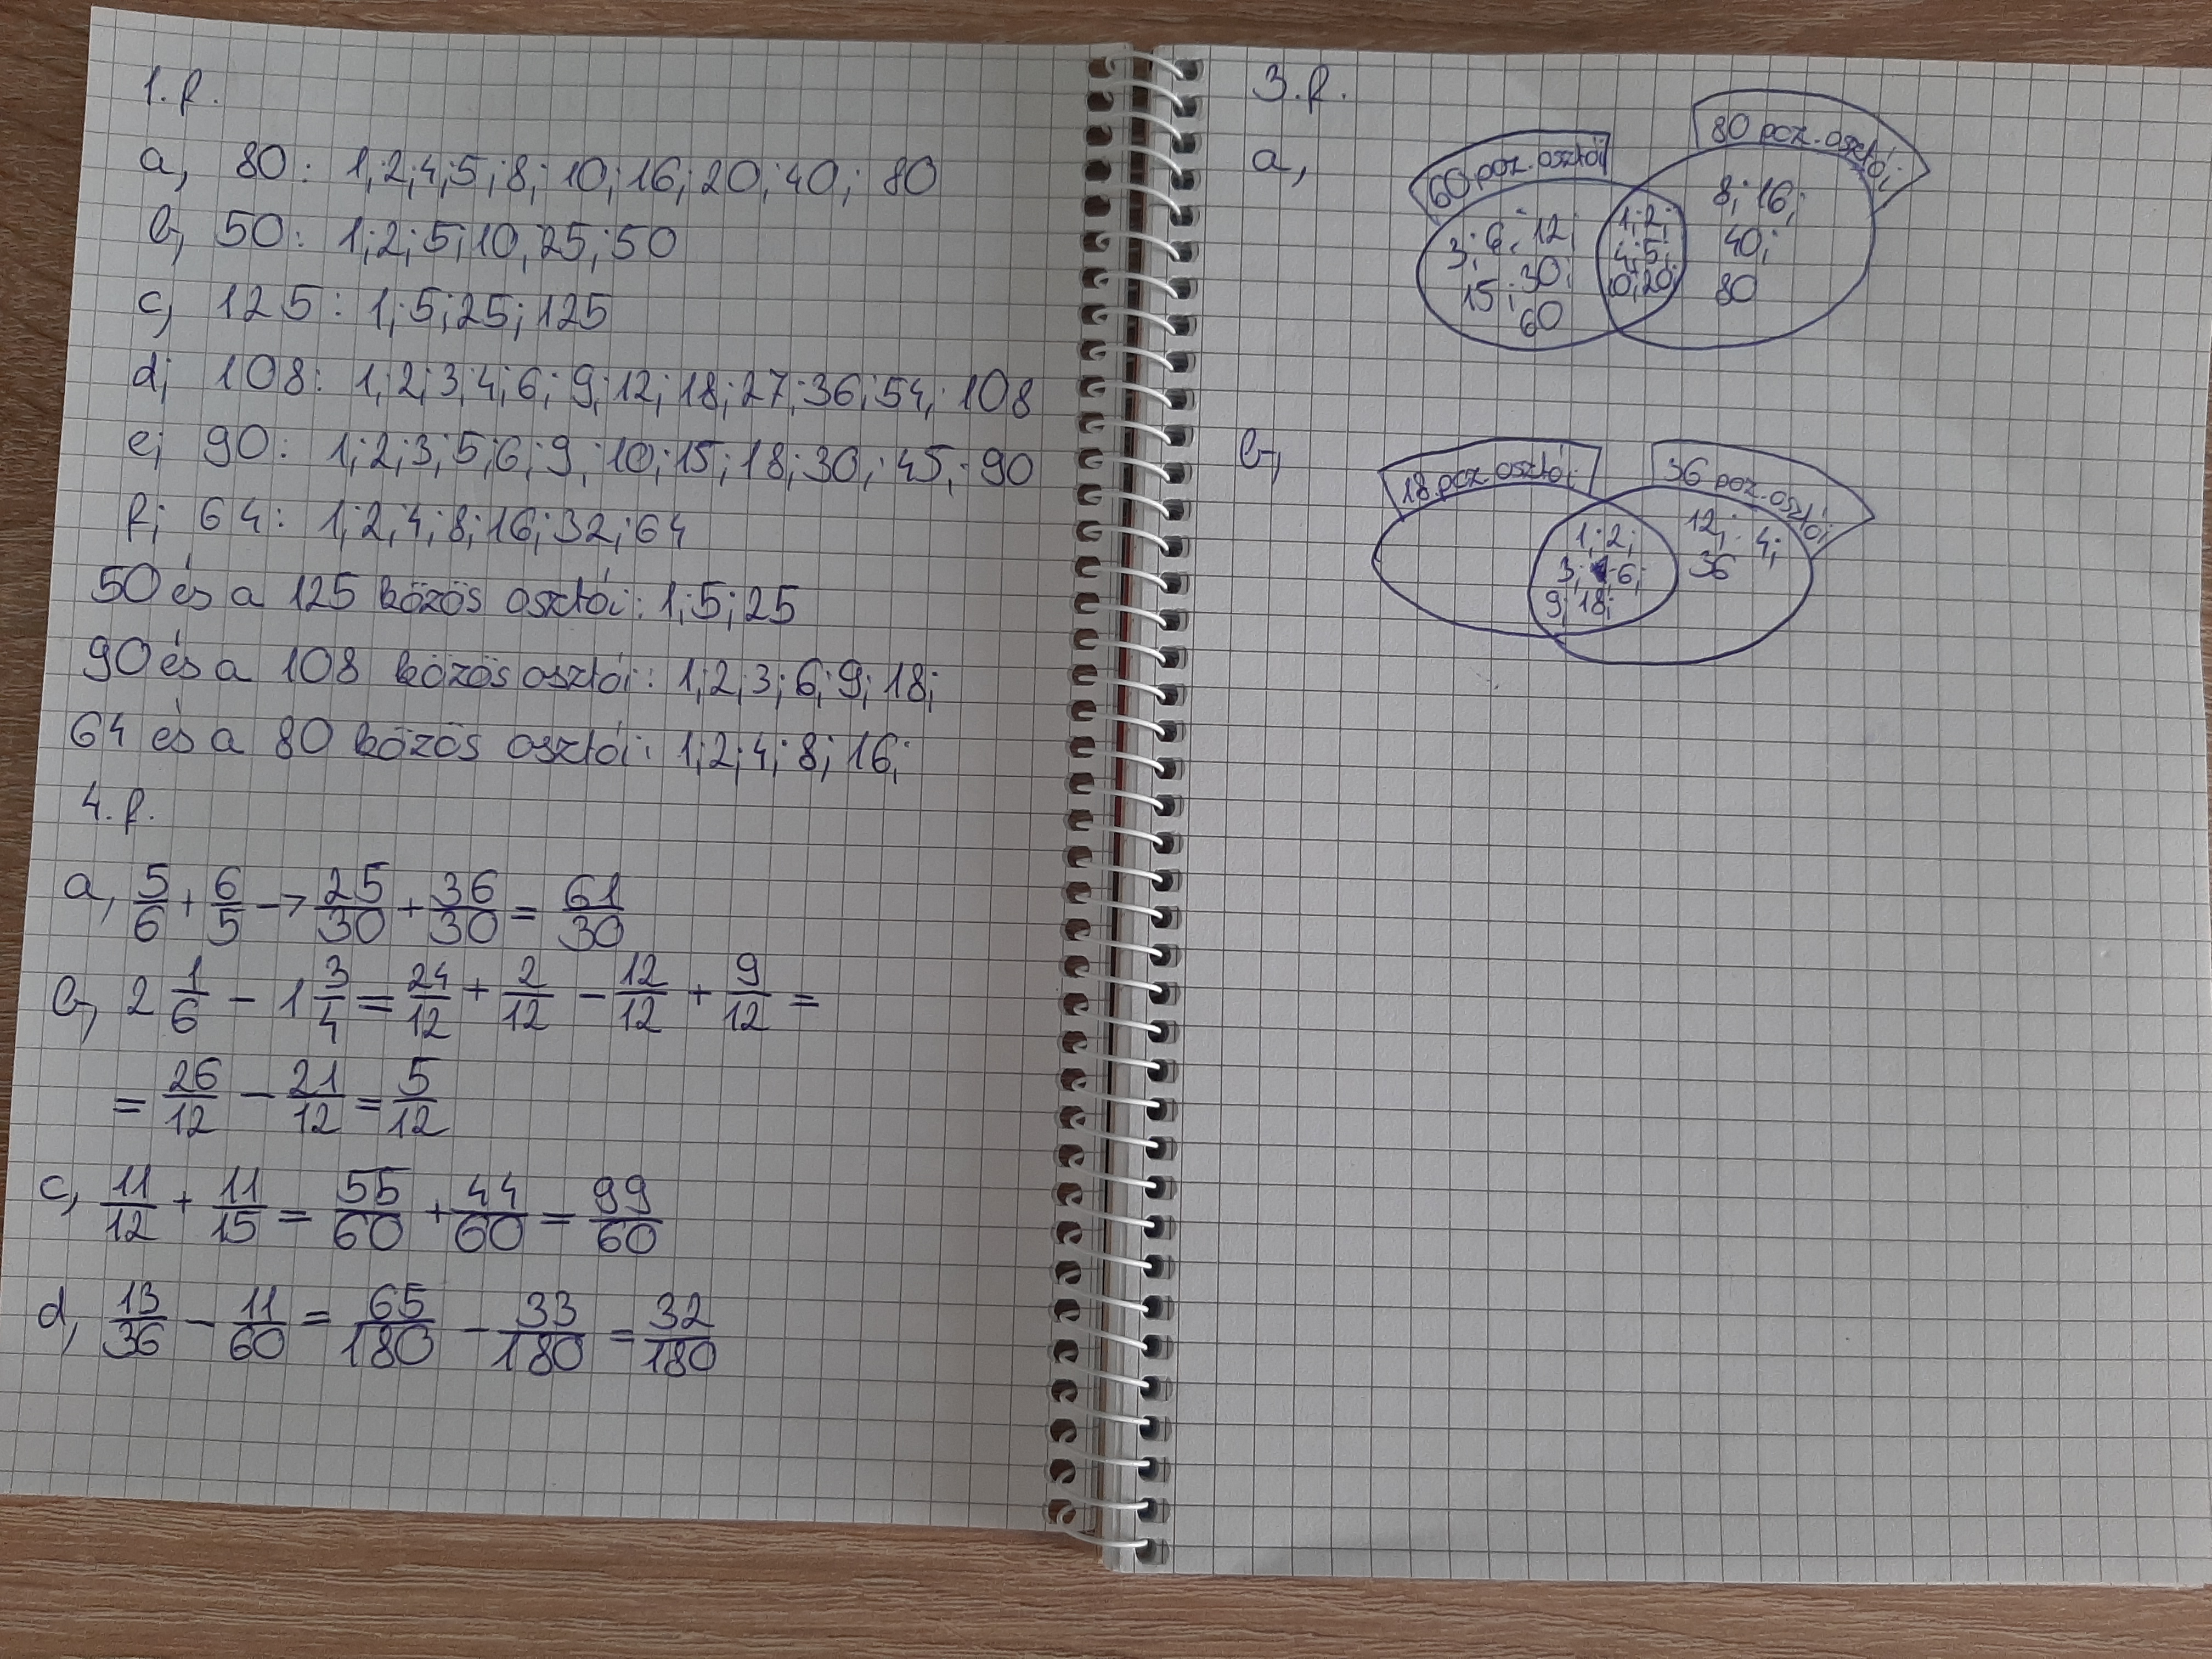 1.f.
a, 80: 1;2;4;5;8; 10;16;20;40; 80
b, 50: 1;2;5;10;25;50
c, 125: 1;5;25;125
d; 108: 1;2;3;4;6; 9;12;18;27;36;54; 108
e; 90: 1;2;3;5;6;9; 10;15;18;30;45; 90
f; 64: 1;2;4;8;16;32;64
50 és a 125 közös osztói: 1;5;25
90 és a 108 közös osztói: 1;2;3;6;9;18;
64 és a 80 közös osztói: 1;2;4;8;16;
4.f.
a, 5/6 + 6/5 → 25/30 + 36/30 = 61/30
b, 2 1/6 - 1 3/4 = 24/12 + 2/12 - 12/12 + 9/12 =
= 26/12 - 21/12 = 5/12
c, 11/12 + 11/15 = 55/60 + 44/60 = 99/60
d, 13/36 - 11/60 = 65/180 - 33/180 = 32/180
3.f.
a,
60 poz. osztói
80 poz. osztói
3; 6; 12;
15; 30;
60
1;2;
4;5;
10;20;
8; 16;
40;
80
b,
18 poz. osztói
36 poz. osztói
1; 2;
3; 6;
9; 18;
12; 4;
36